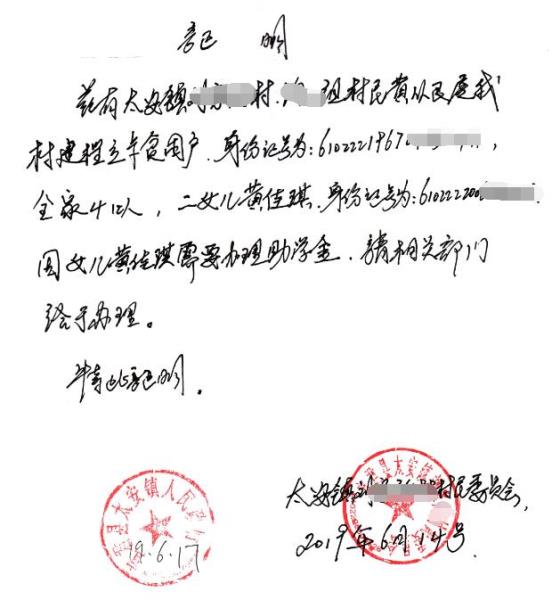 证 明
兹有太安镇 村 组村民黄从民是我
村建档立卡贫困户,身份证号为:610222196
全家4口人,二女儿黄佳琪,身份证号为:610222200
因女儿黄佳琪需要办理助学金,请相关部门
给予办理。
特此证明。
太安镇 村民委员会,
2019年6月14号.
县太安镇人民
19.6.17
县太安镇